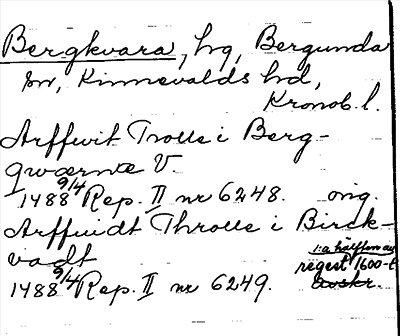 Bergkvara, hg, Bergunda
sn, Kinnevalds hd,
Kronob. l.
Arffwit Trolle i Berg-
qwærnæ V.
1488 9/4 Rep. II nr 6248. orig.
Arffuidt Throlle i Birck-
vadt
1:a hälften av
regest 1600-t
1488 9/4 Rep. II nr 6249. avskr.